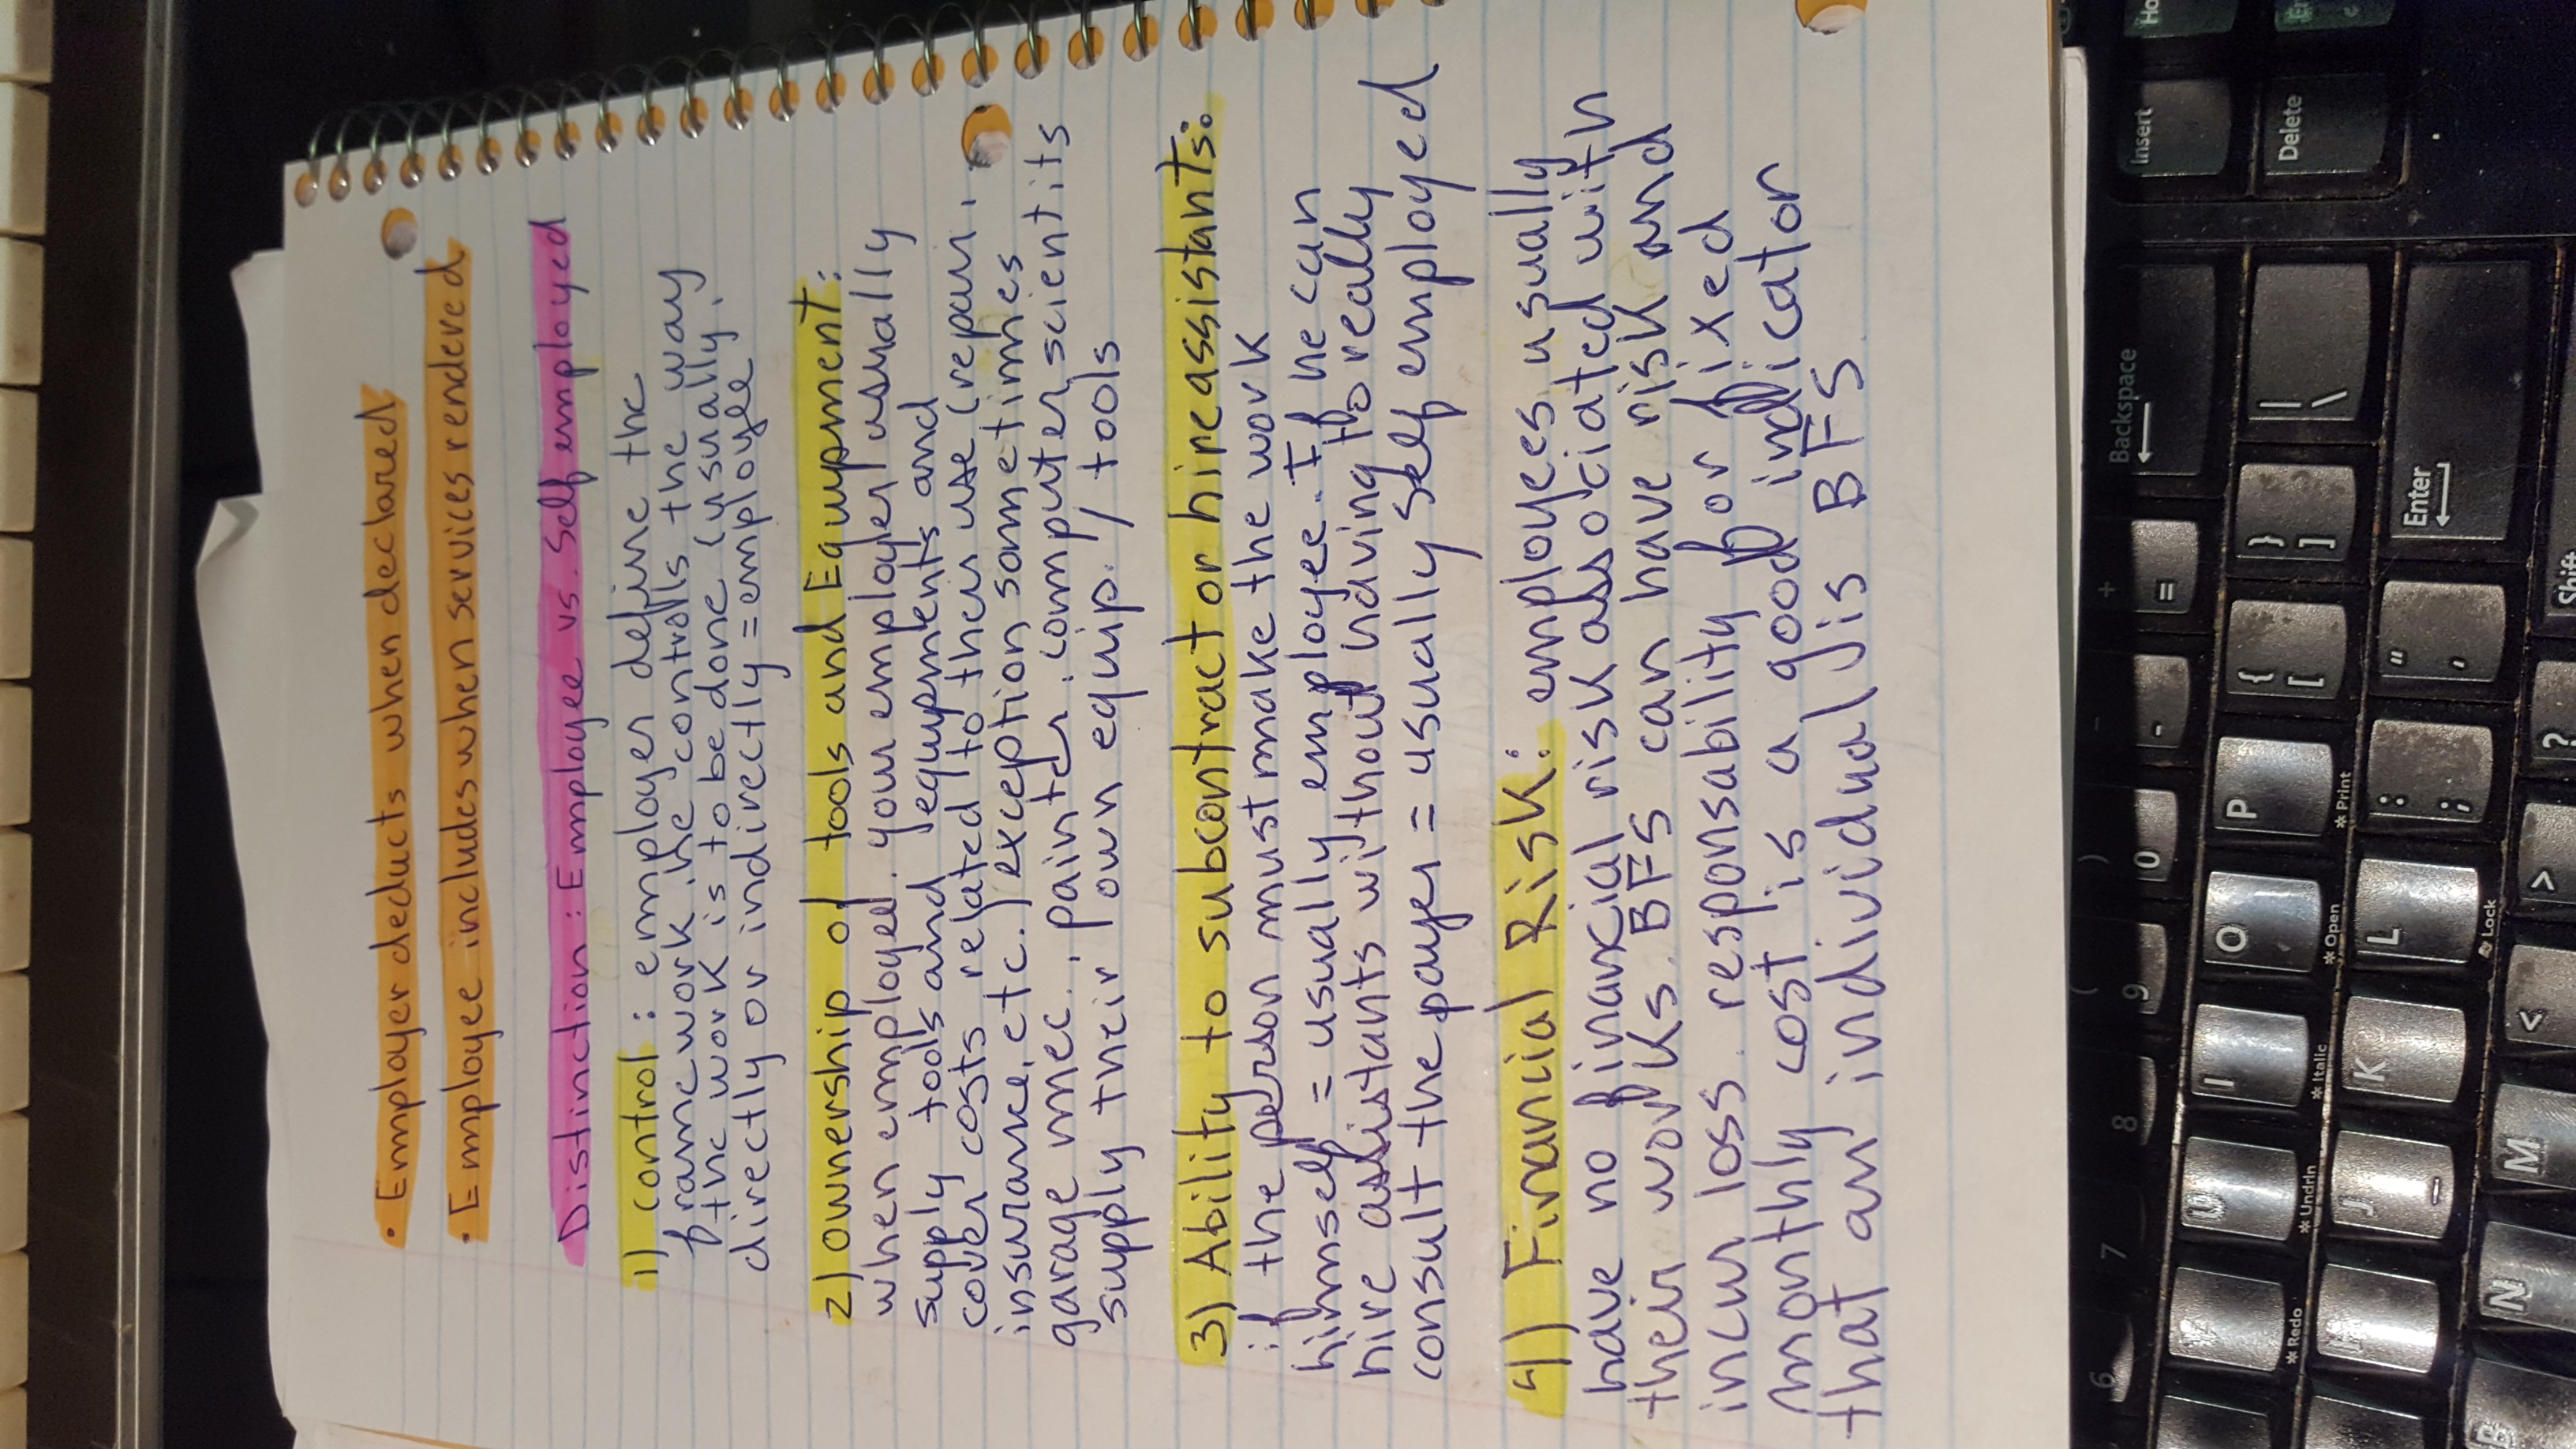 • Employer deducts when declared
• Employee includes when services rendered
Distinction : Employee vs. Self employed
1) control : employer define the
framework. he controlls the way
the work is to be done (usually.
directly or indirectly = employee
2) ownership of tools and Equipment :
when employee. your employer usually
supply tools and equipments and
cover costs related to their use (repair,
insurance, etc.) exception sometimes
garage mec., painter, computer scientits
supply their own equip. / tools
3) Ability to subcontract or hire assistants:
if the person must make the work
himself = usually employee. If he can
hire assistants without having to really
consult the payer = usually self employed
4) Financial Risk: employees usually
have no financial risk associated with
their works. BFS can have risk and
incur loss. responsability for fixed
monthly cost is a good indicator
that an individual is BFS.
Insert
Delete
Backspace
Enter
Shift
| \
} ]
{ [
+ =
- -
" '
: ;
? 
P
* Print
) 0
O
* Open
L
Lock
>
( 9
I
* Italic
K
<
8
U
* Undrln
J
M
7
* Redo
N
6
B
Ho